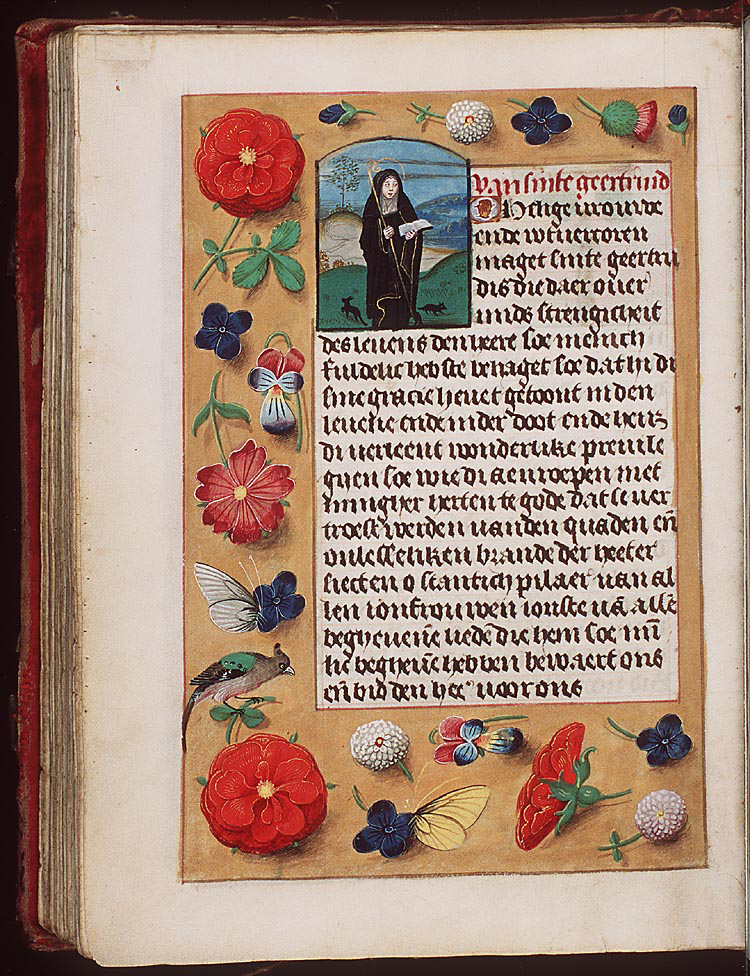 Van sinte geertruid
O Helige vrouwe
ende wtuercoren
maget sinte geertru
dis die daer ouer
mids strengicheit
des leuens den heere soe menich
fuldelic hebste behaget soe dat hi di
sine gracie heuet getoont in den
leuene ende in der doot ende heift
di verleent wonderlike preuile
gien soe wie di aenroepen met
innigher herten te gode dat se ver
troest werden van den quaden en̄
onlesseliken brande der heeter
siecten o stantich pilaer van al
len ionfrouwen ionste vā allē
begheuenē liedē die hem soe mī
lic begheuē hebben bewaert ons
en̄ bid den hee voor ons